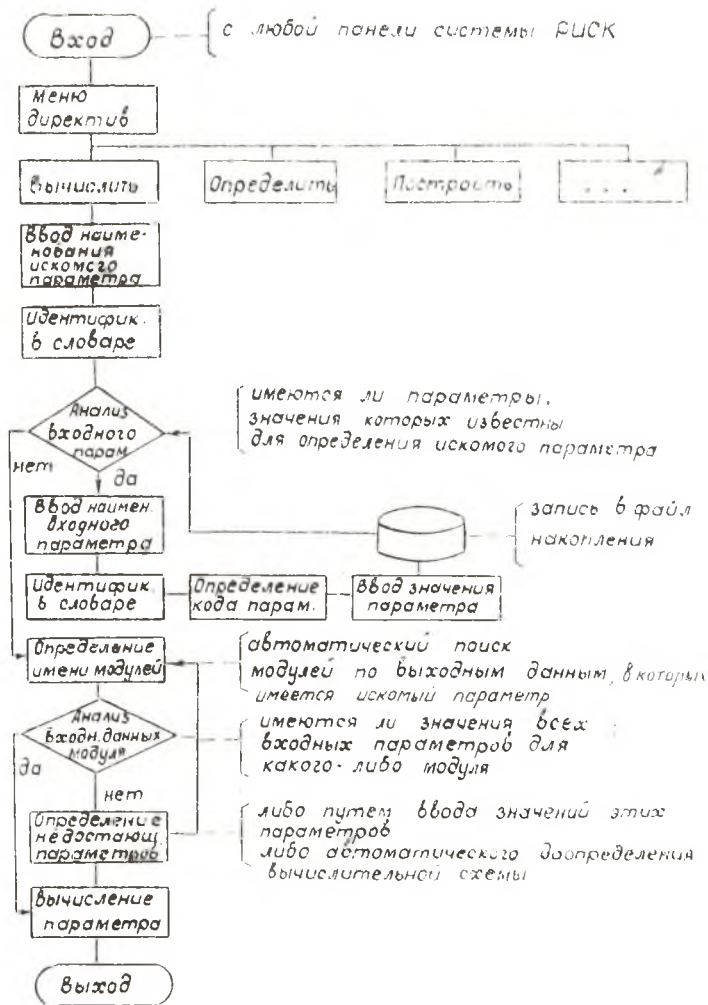 Вход
с любой панели системы РИСК
Меню
директив
Вычислить
Определить
Построить
...
Ввод наиме-
нования
искомого
параметра
Идентифик.
в словаре
Анализ
входного
парам.
имеются ли параметры,
значения которых известны
для определения искомого параметра
нет
да
Ввод наимен.
входного
параметра
запись в файл
накопления
Идентифик.
в словаре
Определение
кода парам.
Ввод значения
параметра
Определение
имени модулей
автоматический поиск
модулей по выходным данным, в которых
имеется искомый параметр
Анализ
входн. данных
модуля
имеются ли значения всех
входных параметров для
какого-либо модуля
да
нет
Определение
недостающ.
параметров
либо путем ввода значений этих
параметров
либо автоматического доопределения
вычислительной схемы
Вычисление
параметра
Выход